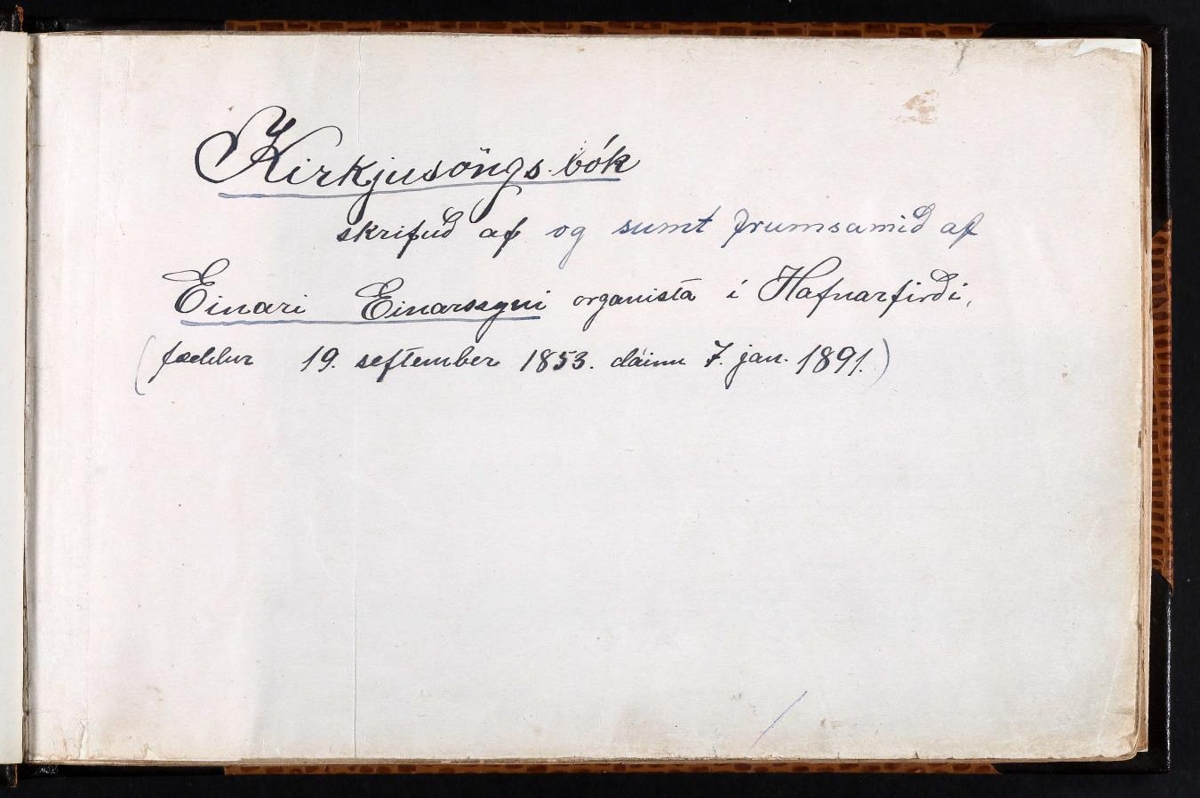 Kirkjusöngs-bók
skrifuð af og sumt frumsamið af
Einari Einarssyni organista í Hafnarfirði,
(fæddur 19. september 1853. dáinn 7. jan. 1891.)